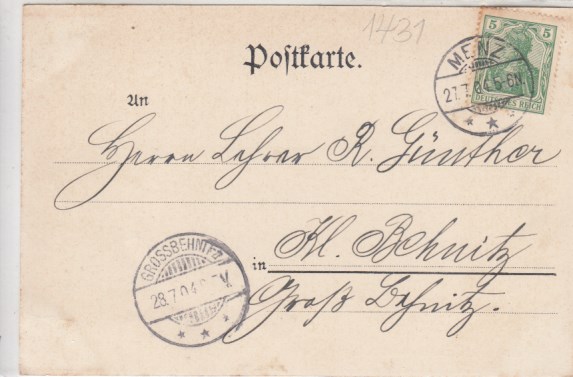 1431
Postkarte.
5 5
MENZ
27.7.04.6-6N
DEUTSCHES REICH
An
Herrn Lehrer R. Günther
in Kl. Behnitz
Groß Behnitz.
GROSSBEHNITZ
28.7.04. V.